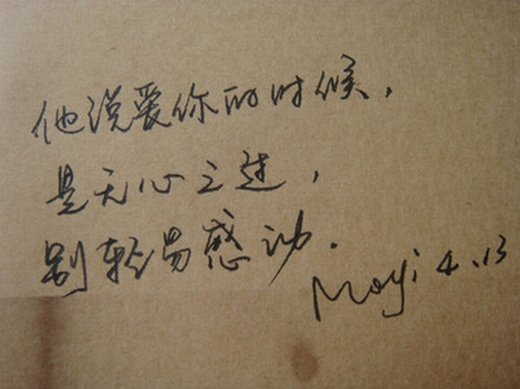 他说爱你的时候，
是无心之过，
别轻易感动.
Moyi 4.13